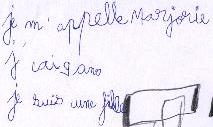 je m'appelle Marjorie
j'ai gans
je suis une fille